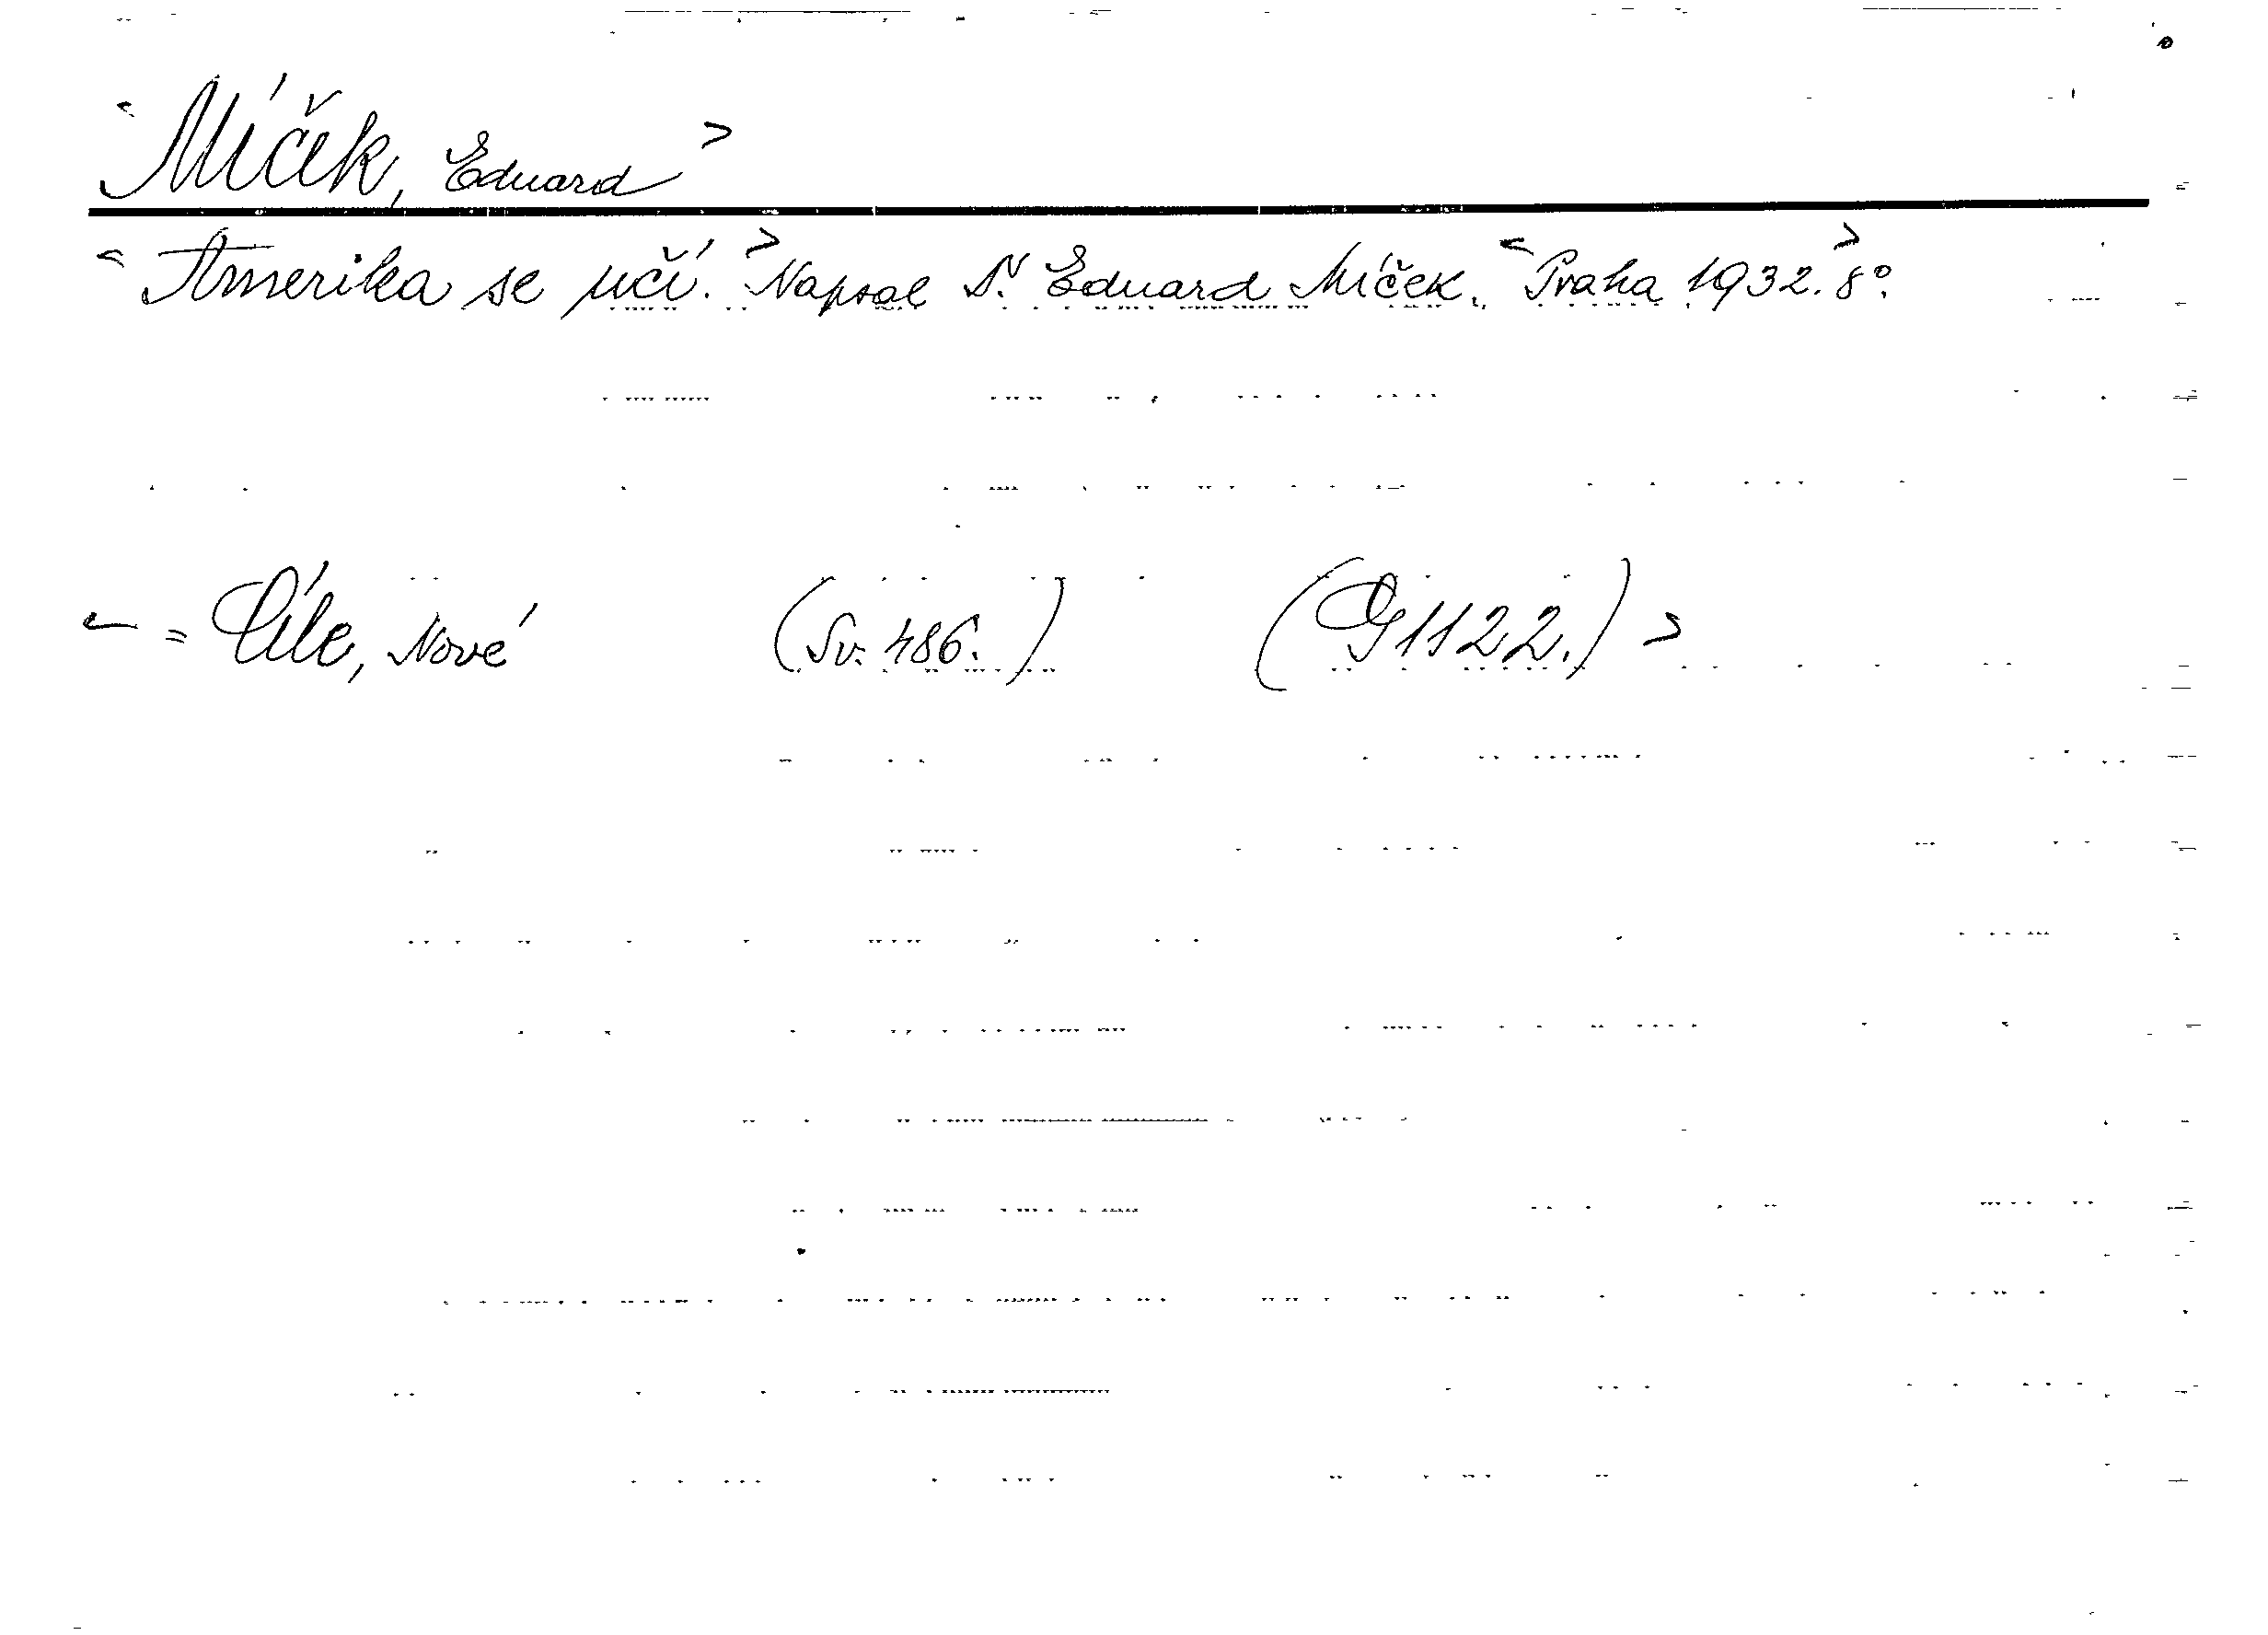 < Míček, Eduard >
< Amerika se učí. > Napsal Dr. Eduard Míček. < Praha 1932. > 8°.
< = Cíle, Nové (Sv. 486.) (G 1122.) >